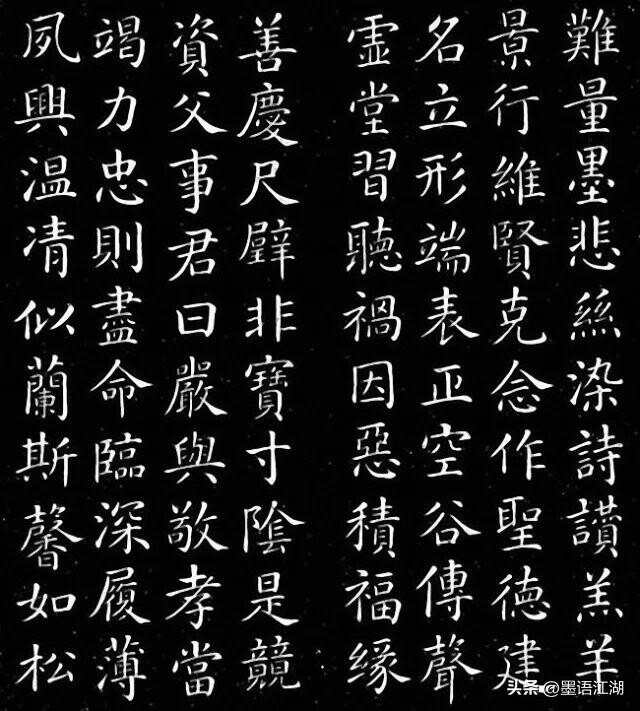 難量墨悲絲染詩讚羔羊
景行維賢克念作聖德建
名立形端表正空谷傳聲
虛堂習聽禍因惡積福緣
善慶尺璧非寶寸陰是競
資父事君曰嚴與敬孝當
竭力忠則盡命臨深履薄
夙興温凊似蘭斯馨如松
头条@墨语江湖